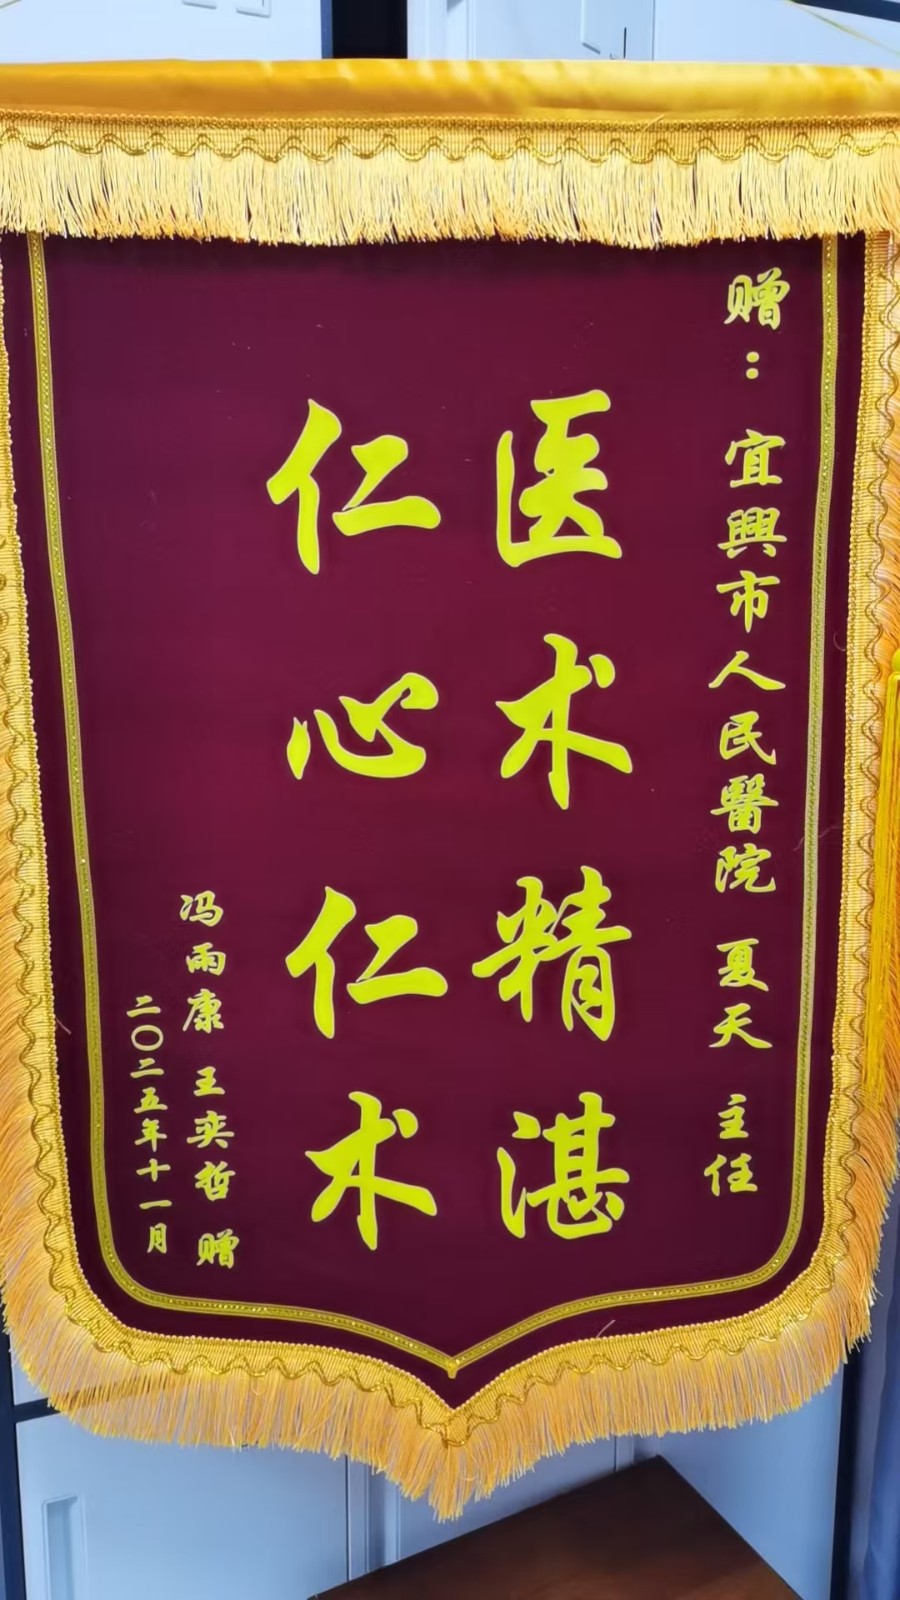 赠：宜興市人民醫院 夏天 主任
医术精湛
仁心仁术
冯雨康 王奕哲 赠
二〇二五年十一月